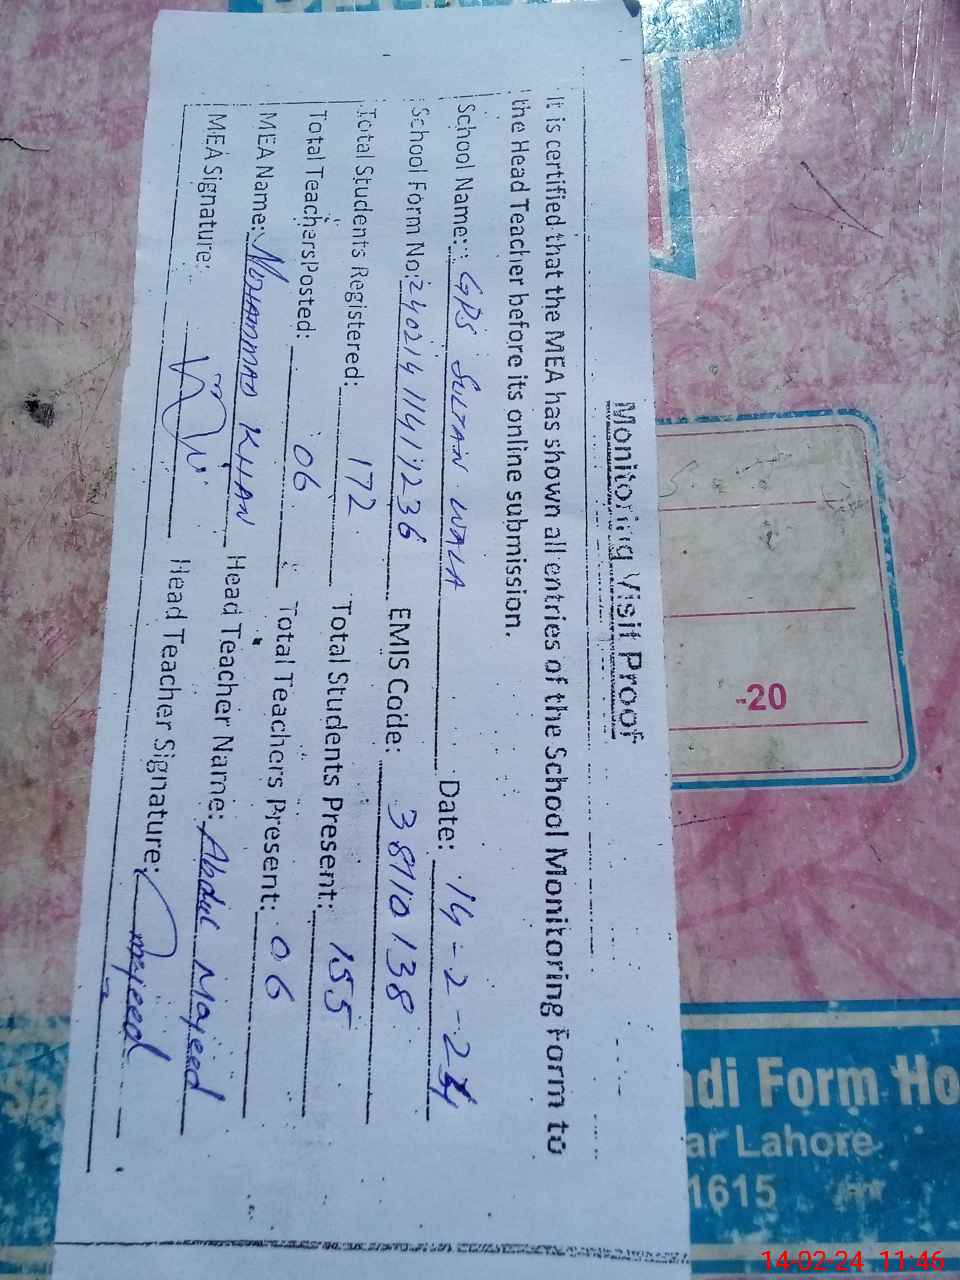 Monitoring Visit Proof
It is certified that the MEA has shown all entries of the School Monitoring Form to
the Head Teacher before its online submission.
School Name: GPS SULTAN WALA Date: 14-2-24
School Form No: 24021411411236 EMIS Code: 38110138
Total Students Registered: 172 Total Students Present: 155
Total Teachers Posted: 06 Total Teachers Present: 06
MEA Name: MOHAMMAD KHAN Head Teacher Name: Abdul Majeed
MEA Signature: Head Teacher Signature: Majeed
-20
di Form Ho
ar Lahore
1615
14-02-24 11:46